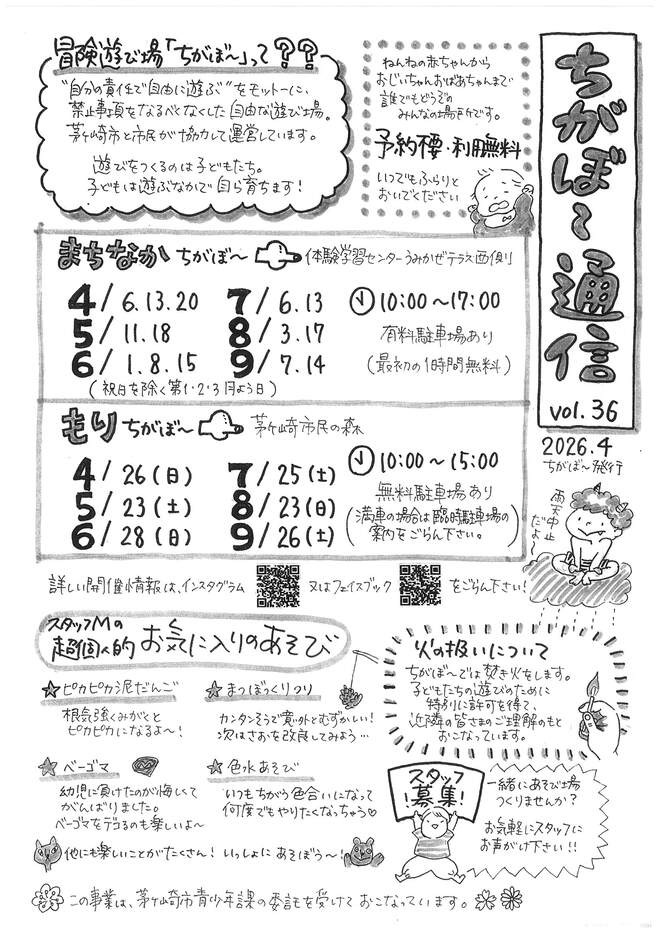 冒険遊び場「ちがぼ～」って??
"自分の責任で自由に遊ぶ"をモットーに、
禁止事項をなるべくなくした自由な遊び場。
茅ヶ崎市と市民が協力して運営しています。
遊びをつくるのは子どもたち。
子どもは遊ぶなかで自ら育ちます!
ねんねの赤ちゃんから
おじいちゃんおばあちゃんまで
誰でもどうぞの
みんなの場所です。
予約不要・利用無料
いつでもふらりと
おいでください
ちがぼ～通信
vol.36
2026.4
ちがぼ～発行
まちなか ちがぼ～ 体験学習センターうみかぜテラス西側
4/6.13.20
5/11.18
6/1.8.15
7/6.13
8/3.17
9/7.14
(祝日を除く第1・2・3月よう日)
10:00～17:00
有料駐車場あり
(最初の1時間無料)
もり ちがぼ～ 茅ヶ崎市民の森
4/26(日)
5/23(土)
6/28(日)
7/25(土)
8/23(日)
9/26(土)
10:00～15:00
無料駐車場あり
(満車の場合は臨時駐車場の
案内をごらん下さい。)
雨天中止
だよ～
詳しい開催情報は、インスタグラム 又はフェイスブック をごらん下さい!
スタッフMの
超個人的 お気に入りのあそび
☆ピカピカ泥だんご
根気強くみがくと
ピカピカになるよ～!
☆まつぼっくりつり
カンタンそうで意外とむずかしい!
次はさおを改良してみよう…
☆ベーゴマ
幼児に負けたのが悔しくて
がんばりました。
ベーゴマをデコるのも楽しいよ～
☆色水あそび
いつもちがう色合いになって
何度でもやりたくなっちゃう♡
他にも楽しいことがたくさん! いっしょに あそぼう～!
火の扱いについて
ちがぼ～では焚き火をします。
子どもたちの遊びのために
特別に許可を得て、
近隣の皆さまのご理解のもと
おこなっています。
スタッフ
募集!
一緒にあそび場
つくりませんか?
お気軽にスタッフに
お声がけ下さい!!
この事業は、茅ヶ崎市青少年課の委託を受けて おこなっています。